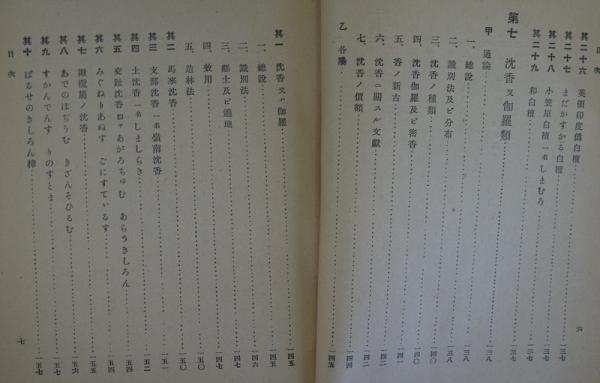 其二十六 英領印度僞白檀……三七
其二十七 まだかすかる白檀……三七
其二十八 小笠原白檀 一名しまむろ……三七
其二十九 和白檀……三七
第七 沈香又伽羅類
甲 通論……三八
一、總說……三八
二、識別法及ビ分布……三八
三、沈香ノ種類……四〇
四、沈香伽羅及ビ密香……四〇
五、香ノ新古……四一
六、沈香ニ關スル文獻……四二
七、沈香ノ價額……四四
乙 各論……四五
六
其一 沈香又ハ伽羅……四五
一、總說……四五
二、識別法……四六
三、鄕土及ビ適地……四七
四、效用……五〇
五、造林法……五〇
其二 馬來沈香……五一
其三 支那沈香 一名嶺南沈香……五二
其四 土沈香 一名しましらき……五四
其五 交趾沈香 あがろちゆむ あらうきしろん……五四
其六 みくねりあぬす ごにすてぃるす……五五
其七 橄欖屬ノ沈香……五六
其八 あでのほぢうむ きざんそひるむ……五七
其九 すかんでんす りのすとま……五七
其十 ぱるせのきしろん樟……五七
目次
七